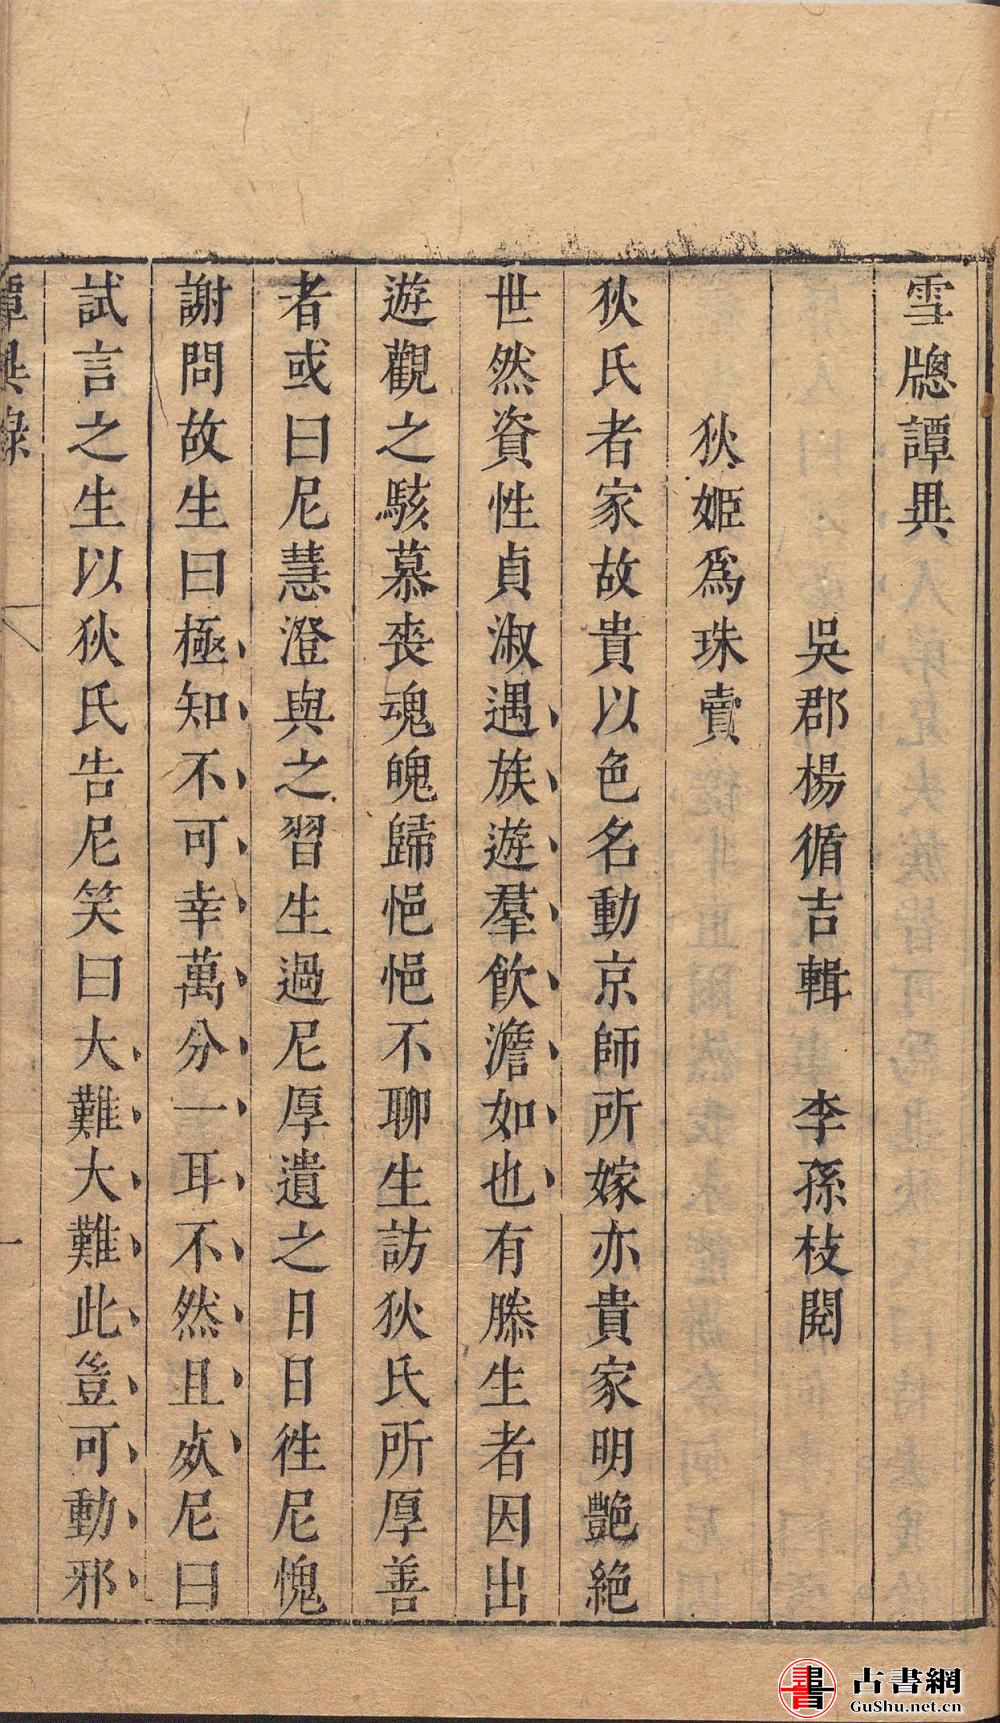 雪牕譚異
吳郡楊循吉輯　李孫枝閱
狄姬爲珠賣
狄氏者家故貴以色名動京師所嫁亦貴家明艷絕
世然資性貞淑遇族遊羣飲澹如也有滕生者因出
遊觀之駭慕喪魂魄歸悒悒不聊生訪狄氏所厚善
者或曰尼慧澄與之習生過尼厚遺之日日徃尼愧
謝問故生曰極知不可幸萬分一耳不然且死尼曰
試言之生以狄氏告尼笑曰大難大難此豈可動邪
譚異錄
一
古書網
GuShu.net.cn